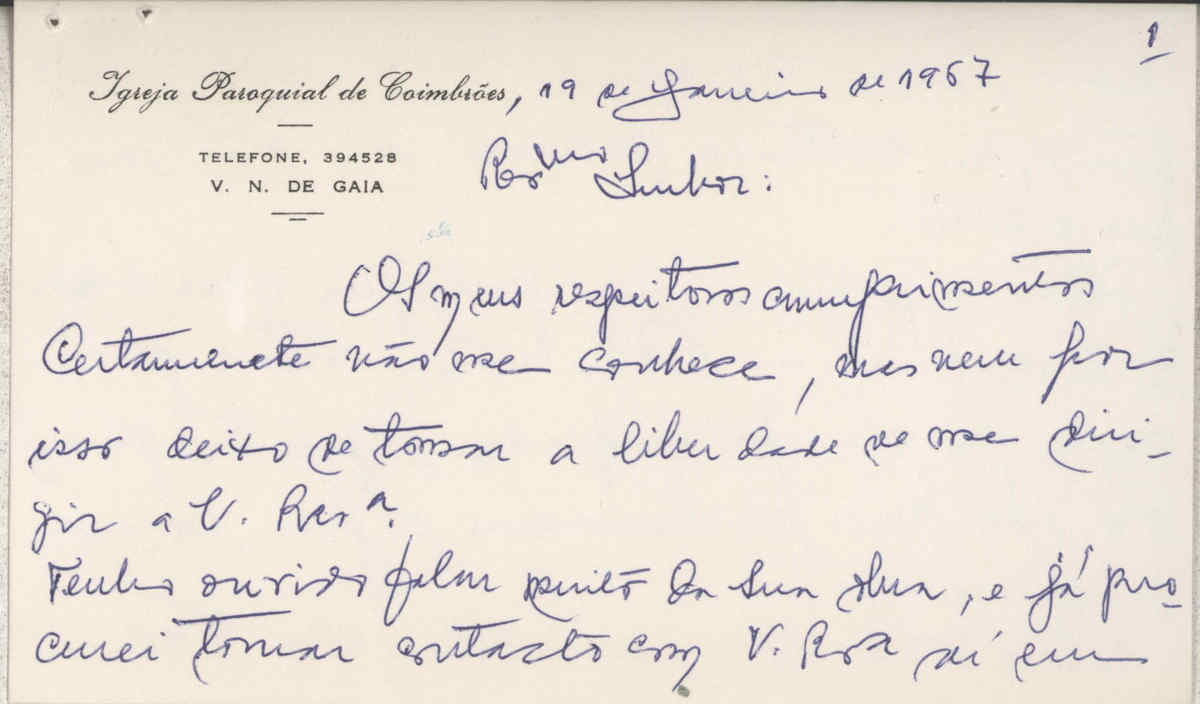 1
Igreja Paroquial de Coimbrões, 19 de Janeiro de 1967
TELEFONE, 394528
V. N. DE GAIA
Revmo Senhor:
Os meus respeitosos cumprimentos
Certamente não me conhece, mas nem por
isso deixo de tomar a liberdade de me diri-
gir a V. Reva.
Tenho ouvido falar muito da sua obra, e já pro-
curei tomar contacto com V. Rva aí em